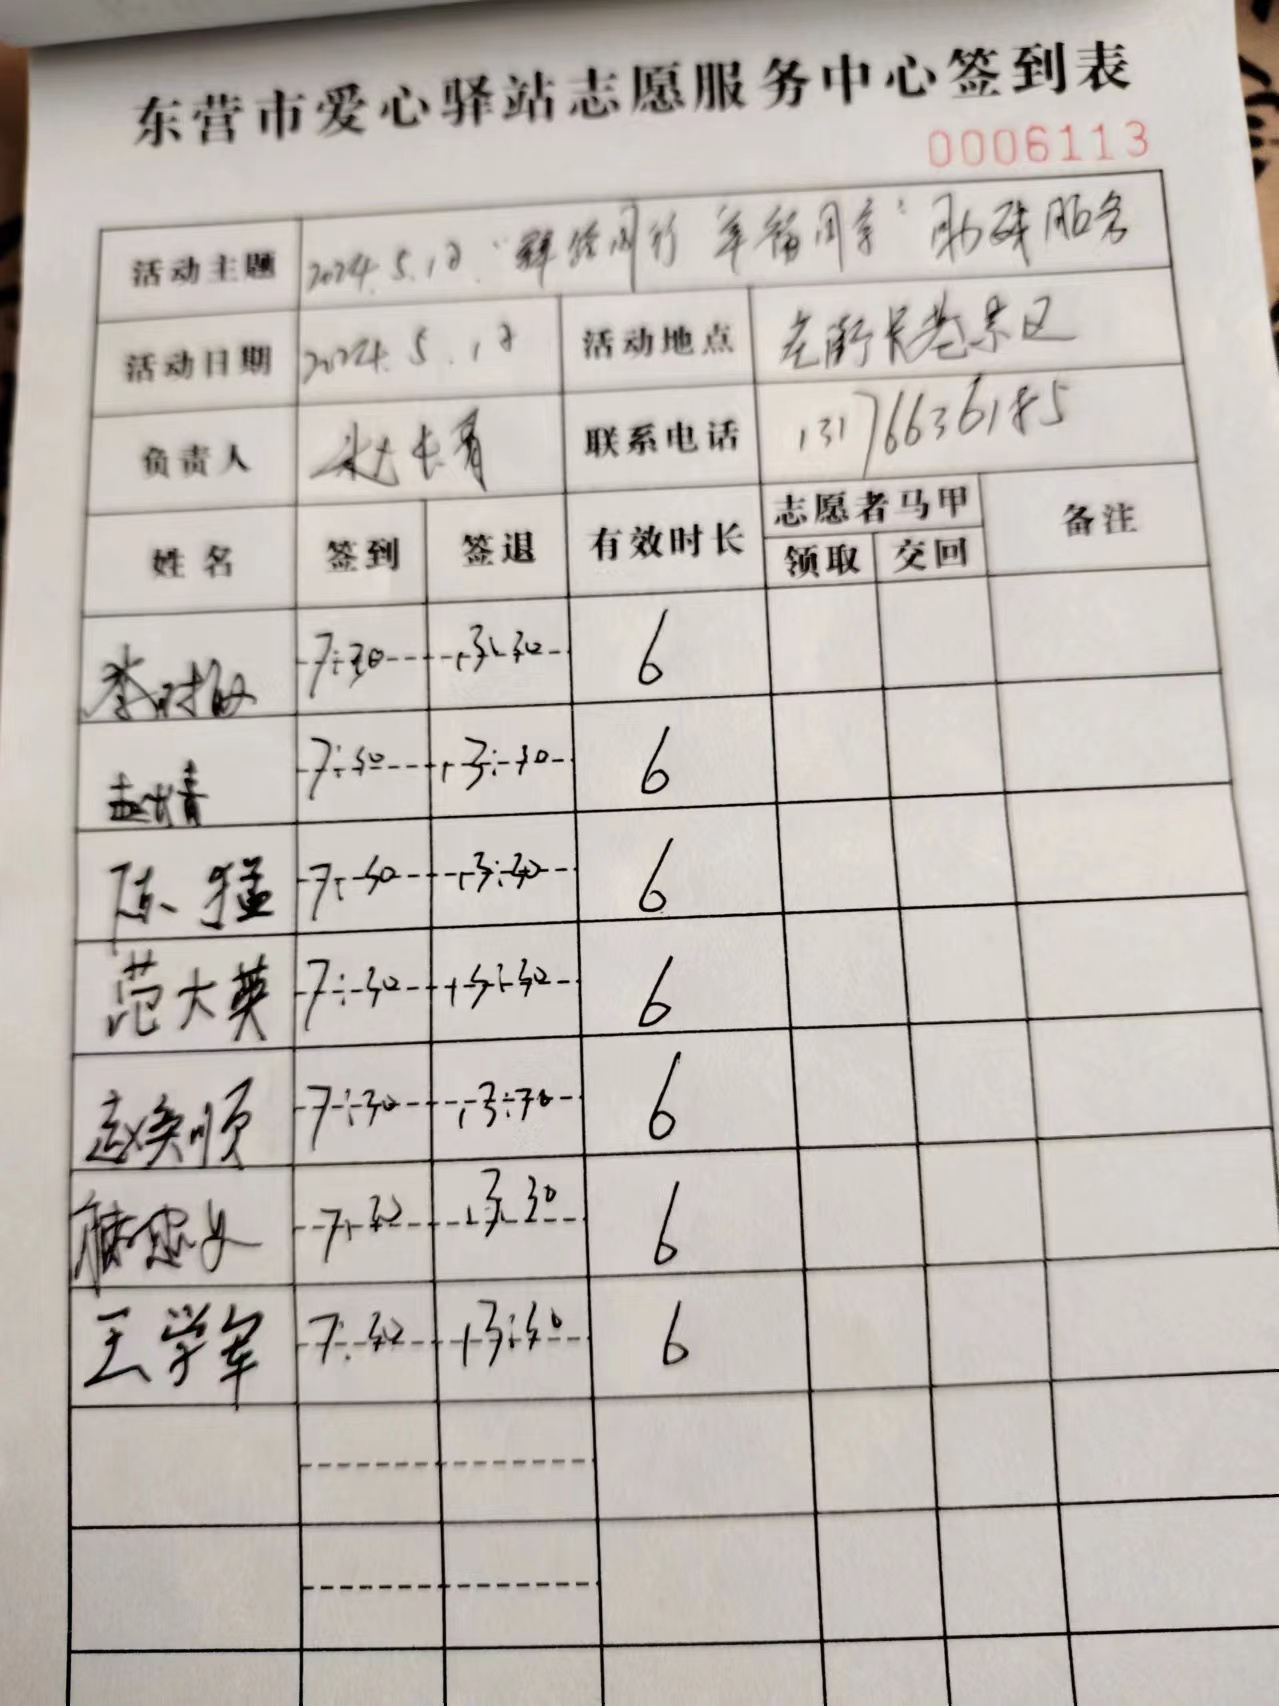 东营市爱心驿站志愿服务中心签到表
0006113
活动主题 2024.5.18 同行 幸福同享" 助残服务
活动日期 2024.5.18 活动地点 老街长巷景区
负责人 赵长青 联系电话 13176636185
姓名 签到 签退 有效时长 志愿者马甲 备注
领取 交回
李时敏 7:30 13:30 6
7:30 13:30 6
陈猛 7:30 13:30 6
范大英 7:30 13:30 6
赵奂顺 7:30 13:30 6
7:30 13:30 6
王学军 7:30 13:30 6